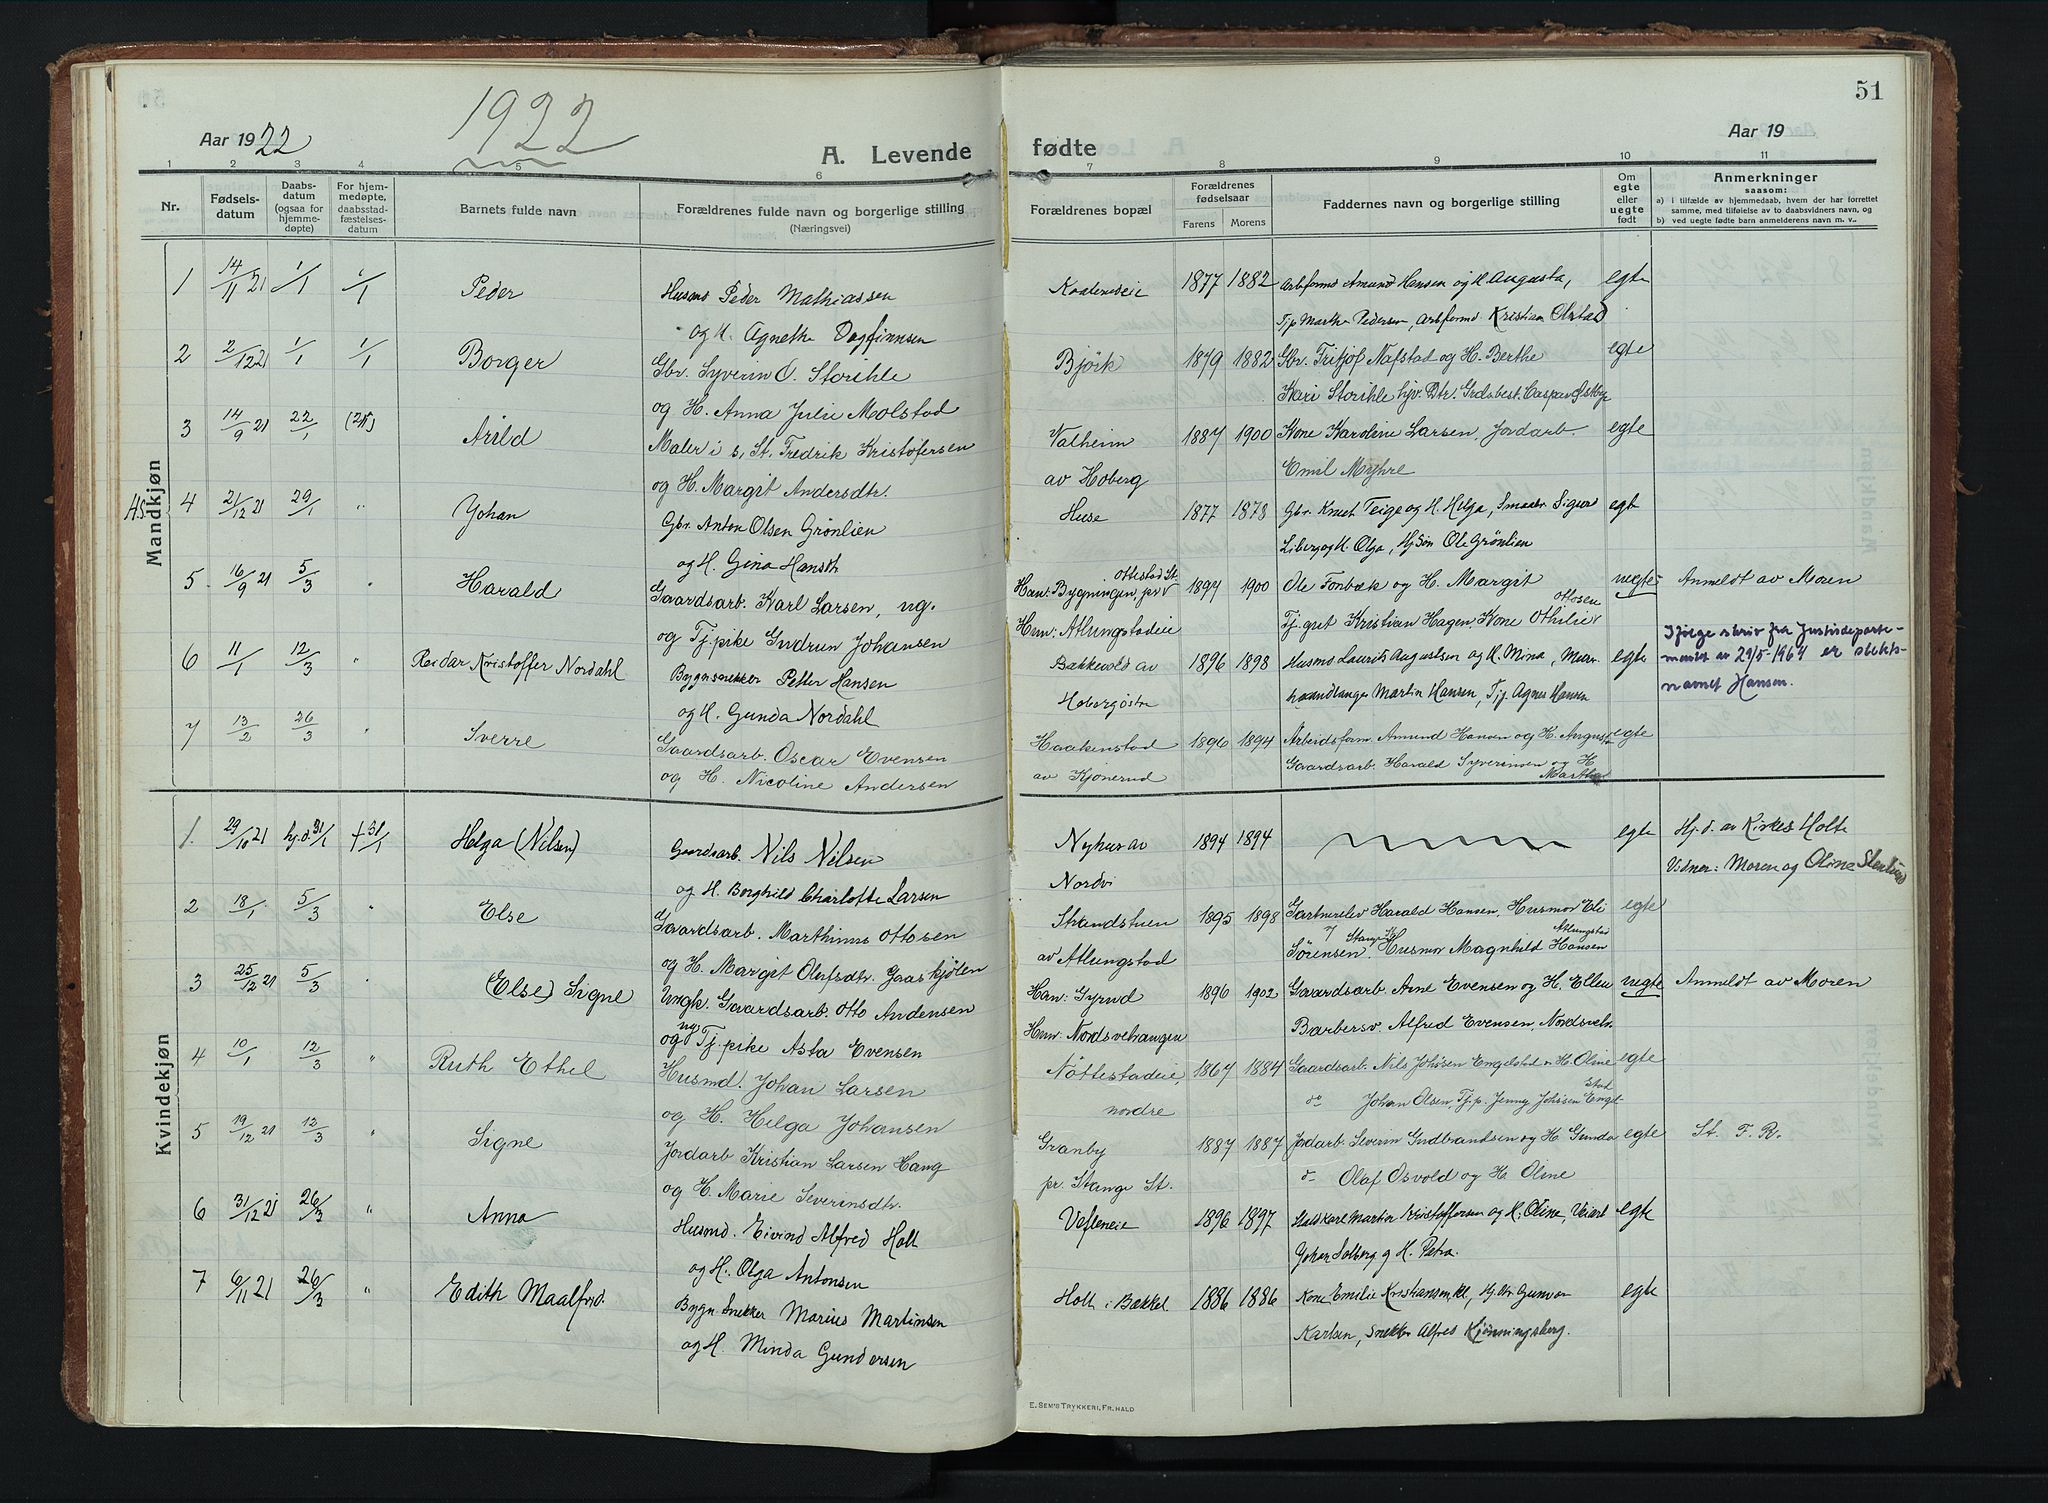 51
1922
Aar 1922
A. Levende fødte
Aar 19
1 2 3 4 5 6 7 8 9 10 11
Nr.
Fødselsdatum
Daabsdatum (ogsaa for hjemmedøpte)
For hjemmedøpte, daabsstadfæstelsesdatum
Barnets fulde navn
Forældrenes fulde navn og borgerlige stilling (Næringsvei)
Forældrenes bopæl
Forældrenes fødselsaar
Farens Morens
Faddernes navn og borgerlige stilling
Om egte eller uegte født
Anmerkninger
saasom:
a) i tilfælde av hjemmedaab, hvem der har forrettet samme, med tilføielse av to daabsvidners navn, og
b) ved uegte fødte barn anmelderens navn m. v..
Mandkjøn
1 14/11 21 1/1 1/1 Peder Husms Peder Mathiassen Kaaleneseie 1877 1882 Arbformd Amund Hansen og H Augusta, egte
og H. Agnethe Dagfinnsen Tjp Marthe Pedersen, Arbformd Kristian Olstad
2 2/12 21 1/1 1/1 Borger Gbr. Syverin O. Storihle Bjørk 1879 1882 Gbr. Fritjof Nafstad og H. Berthe egte
og H. Anna Julie Molstad Kari Storihle hjv. Dtr. Grdsbest. Caspar Østbye
3 14/9 21 22/1 Arild Maler i s, St. Fredrik Kristofersen Valheim 1887 1900 Kone Karoline Larsen, Jordarb. egte
og H. Margit Andersdtr. av Hoberg Emil Myhre
HS. 4 21/12 21 29/1 " Johan Gbr. Anton Olsen Grønlien Huse 1877 1878 Gbr. Knut Teige og H. Helga, Smaabr Sigurd egte
og H. Gina Hansdtr Liberg og H. Olga, Hj Søn Ole Grønlien
5 16/9 21 5/3 " Harald Gaardsarb. Karl Larsen, ug. Han: Bygningen, pr Ottestad St. 1897 1900 Ole Fonbæk og H. Margit uegte Anmeldt av Moren
og Tj. pike Gudrun Johansen Hun: Atlungstadeie Tj. gut Kristian Hagen, Kone Othilie Ottosen
6 11/1 12/3 " Reidar Kristoffer Nordahl Bygnsnekker Petter Hansen Bakkevold av 1896 1898 Husms Laurits Augustsen og H. Mina, Murer egte Ifølge skriv fra Justisdeparte-
mentet av 29/5-1964 er slekts-
navnet Hansen.
og H. Gunda Nordahl Hobergøstre haandlanger Martin Hansen, Tjp Agnes Hansen
7 13/2 26/3 " Sverre Gaardsarb. Oscar Evensen Haakenstad 1896 1894 Arbeidsform. Amund Hansen og H. Augusta egte
og H. Nicoline Andersen av Kjonerud Gaardsarb. Harald Syverinsen og H. Martha
Kvindekjøn
1. 29/10 21 hj.d. 31/1 + 31/1 Helga (Nilsen) Gaardsarb. Nils Nilsen Nyhus av 1894 1894 egte Hj. d. av Kirkes. Holte
og H. Borghild Charlotte Larsen Nordvi Vidner: Moren og Oline Stenlund
2 18/1 5/3 " Else Gaardsarb. Marthinus Ottosen Strandstuen 1895 1898 Gartnerelev Harald Hansen, Husmor Eli egte
og H. Margit Olufsdtr. Gaaskjølen av Atlungstad Sørensen, Stange St. Husmor Magnhild Hansen Atlungstad
3 25/12 21 5/3 " (Else) Signe Ungk. Gaardsarb. Otto Andersen Han: Gyrud 1896 1902 Gaardsarb. Arne Evensen og H. Ellen uegte Anmeldt av Moren
og ug. Tj. pike Asta Evensen Hun: Nordsvehaugen Barbersv. Alfred Evensen, Nordsveh.
4 10/1 12/3 " Ruth Ethel Husmd. Johan Larsen Nøttestadeie, 1867 1884 Gaardsarb. Nils Johssen Engelstad og H. Oline egte
og H. Helga Johansen nordre do Johan Olsen, Tj. p. Jenny Johssen Engelstad
5 19/12 21 12/3 " Signe Jordarb Kristian Larsen Haug Granby 1887 1887 Jordarb Severin Gudbrandsen og H. Gunda egte St. F. R.
og H. Marie Severinsdtr. pr. Stange St. d- Olaf Osvold og H. Oline
6 31/12 21 26/3 " Anna Husmd. Eivind Alfred Holt Vefleneie 1896 1897 Staldkarl Martin Kristoffersen og H. Olina, Veiarb egte
og H. Olga Antonsen Johan Solberg og H. Petra.
7 6/11 21 26/3 " Edith Maalfrid. Bygn. Snekker Marius Martinsen Holt i Bækkel. 1886 1886 Kone Emilie Kristiansen, Hj. dtr. Gunvor egte
og H. Minda Gundersen Karlsen, Snekker Alfred Kjønningsberg.
E. SEM'S TRYKKERI, FR.HALD